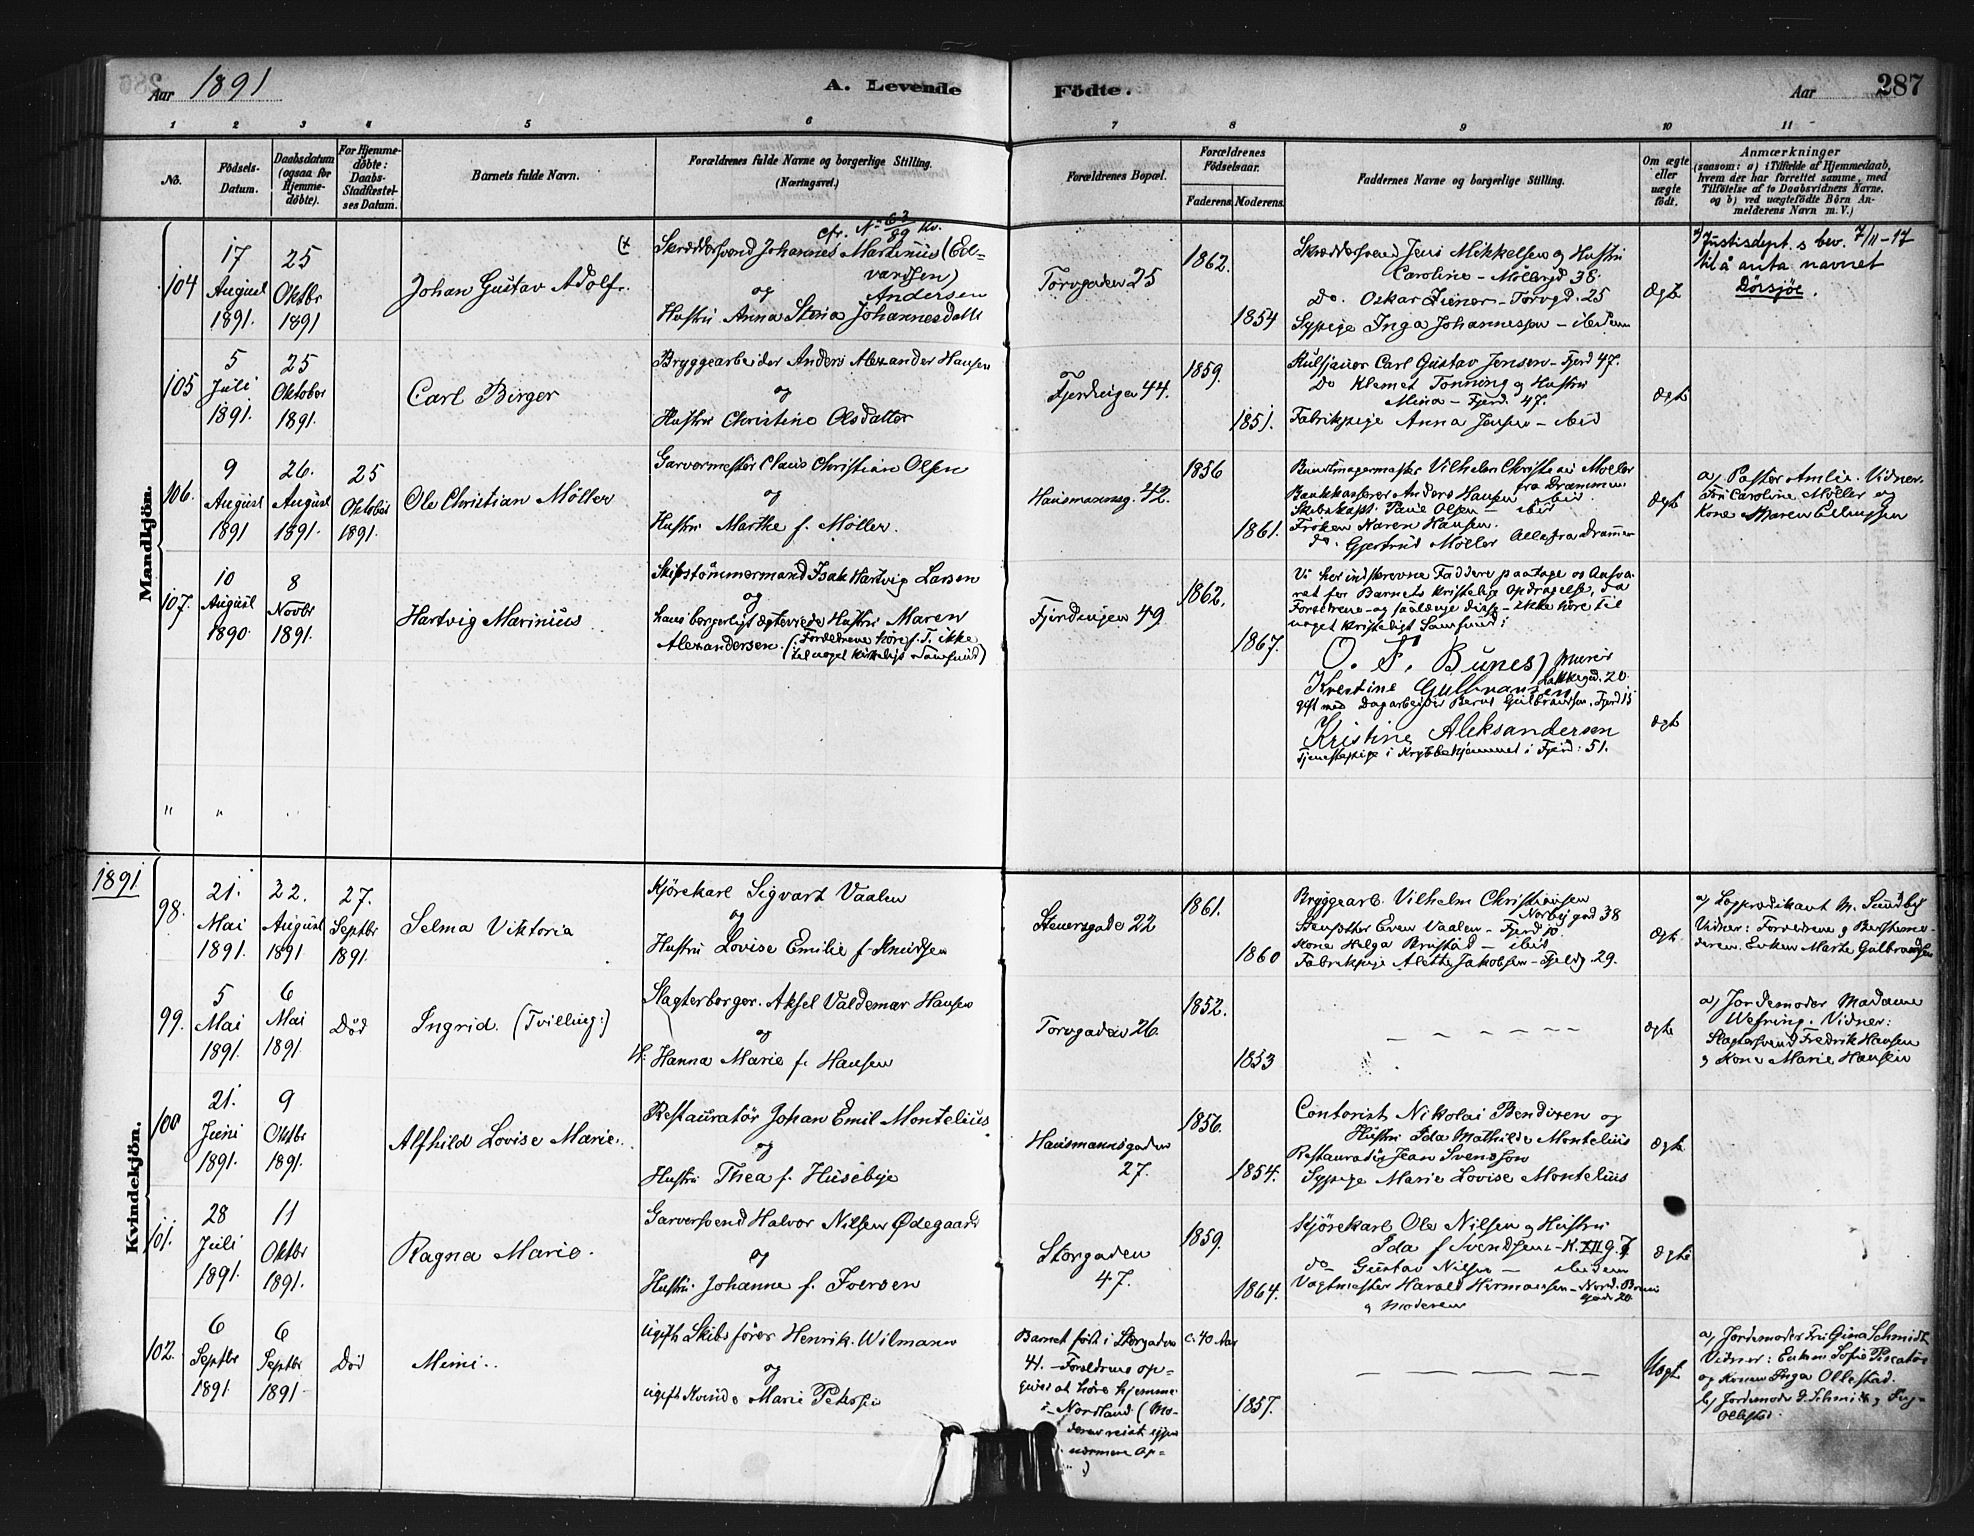 Aar 1891
A. Levende
Födte.
Aar
287
1 2 3 4 5 6 7 8 9 10 11
No.
Födsels-Datum.
Daabsdatum (ogsaa for Hjemme-døbte).
For Hjemme-døbte: Daabs-Stadfæstel-ses Datum.
Barnets fulde Navn.
Forældrenes fulde Navne og borgerlige Stilling.
(Næringsvei.)
Forældrenes Bopæl.
Forældrenes Födselsaar.
Faderens. Moderens.
Faddernes Navne og borgerlige Stilling.
Om ægte eller uægte födt.
Anmærkninger
(saasom: a) i Tilfælde af Hjemmedaab,
hvem der har forrettet samme, med
Tilföielse af to Daabsvidners Navne,
og b) ved uægtefödte Börn An-
melderens Navn m. V.)
Mandkjön.
104
17 August 1891.
25 Oktbr 1891
Johan Gustav Adolf.
cfr. No 63/89 Kv.
Skræddersvend Johannes Martinius (Ed-
vardsen)
Andersen
og
Hustru Anna Stina Johannesdatt
Torvgaden 25
1862.
1854
Skræddersvend Jens Mikkelsen og Hustru
Caroline - Möllergd 38.
Do. Oskar - Torvgd. 25
Sypige Inga Johannessen - ibidem
Ægte
Justisdept.s bev. 7/11-17
til å anta navnet
Dorsjøe.
105
5 Juli 1891.
25 Oktober 1891.
Carl Birger
Bryggearbeider Anders Alexander Hansen
og
Hustru Christine Olsdatter
Fjerdingen 44.
1859.
1851.
Kulsjauer Carl Gustav Jensen - Fjerd 47.
Do Klemet Tonning og Hustru
Mina - Fjerd. 47.
Fabrikpige Anna Jensen - ibid
Ægte
106.
9 August 1891
26. August 1891.
25 Oktober 1891.
Ole Christian Möller
Garvermester Claus Christian Olsen
og
Hustru Marthe f. Møller.
Hausmannsg. 42.
1856
1861.
Buntmagermester Vilhelm Christian Møller
fra Drammen
Bankkasserer Anders Hansen ibid.
Skibskapt. Paul Olsen - ibid
Frøken Karen Hansen.
do. Gjertrud Møller Alle fra Drammen
Ægte
a) Pastor Amlie. Vidner.
Fru Caroline Møller og
Kone Maren Ellingsen
107.
10 August 1890.
8 Novbr 1891.
Hartvig Marinius
Skibstömmermand Isak Hartvig Larsen
og
hans borgerligt ægteviede Hustru Maren
Alexandersen. (Forældrene höre f. T. ikke
til noget kirkeligt Samfund)
Fjerdingen 49
1862.
1867.
Vi her indskrevne Faddere paatage os Ansva-
ret for Barnets kristelige Opdragelse, da
Forældrene - og saalænge disse - ikke höre til
noget kristeligt Samfund:
O. T. Bunes, Murer
Lakkegd. 20
Krestine Gulbransen
gift med Dagarbeider Bernt Gulbrandsen, Fjerd 15
Kristine Aleksandersen
Tjenestepige i Krybbehjemmet i Fjerd: 51.
Ægte
" " "
1891
Kvindekjön.
98.
21. Mai 1891.
22. August 1891
27. Septbr 1891.
Selma Viktoria
Kjörekarl Sigvart Vaalen
og
Hustru Lovise Emilie f. Knudsen
Steuersgade 22
1861.
1860
Bryggearb. Vilhelm Christiansen
Norbygad 38
Even Vaalen - Fjerd 10.
Kone Helga Brustad - ibid
Fabrikpige Alette Jakobsen - 29.
Ægte
a) Lægprædikant M. Sundby
Vidner: Forældrene og Bestemo-
deren Enken Marte Gulbrandsen
99.
5 Mai 1891.
6 Mai 1891.
Död
Ingrid. (Tvilling:)
Slagterborger. Aksel Valdemar Hansen
og
H: Hanna Marie f. Hansen
Torvgaden 26
1852.
1853
- - - - -
Ægte
a) Jordemoder Madame
Wefring. Vidner:
Slagtersvend Fredrik Hansen
og Kone Marie Hansen
100
21. Juni 1891.
9 Oktbr 1891.
Alfhild Lovise Marie.
Restauratör Johan Emil Montelius
og
Hustru Thea f. Huseby
Hausmannsgaden
27.
1856.
1854.
Contorist Nikolai Bendixen og
Hustru Ida Mathilde Montelius
Restauratör Jean Svensson
Sypige Marie Lovise Montelius
Ægte
101.
28 Juli 1891.
11 Oktbr 1891.
Ragna Marie.
Garversvend Halvor Nilsen Ødegaard
og
Hustru Johanne f. Iversen
Storgaden
47.
1859.
1864.
Kjörekarl Ole Nilsen og Hustru
Ida f Svendsen - K. XII g. 7
do Gustav Nilsen - ibidem
Vagtmester Harald Hermansen - Nord. Brun
gade 20
og Moderen
Ægte
102.
6 Septbr 1891.
6 Septbr 1891.
Död
Mimi.
ugift Skibsförer Henrik Wilmann
og
ugift Kvinde Marie Petersen
Barnet født i Storgaden
41. - Forældrene op-
giver at höre hjemme
i Nordland (Mo-
deren reist igjen
nærmere op=
)
c. 40 Aar
1857.
- - - - -
Uægte
a) Jordemoder Fru Gina Schmidt
Vidner: Enken Sofie Piscator
og Konen Inga Ollestad.
b) Jordemoder G. Schmidt og Inga
Ollestad.